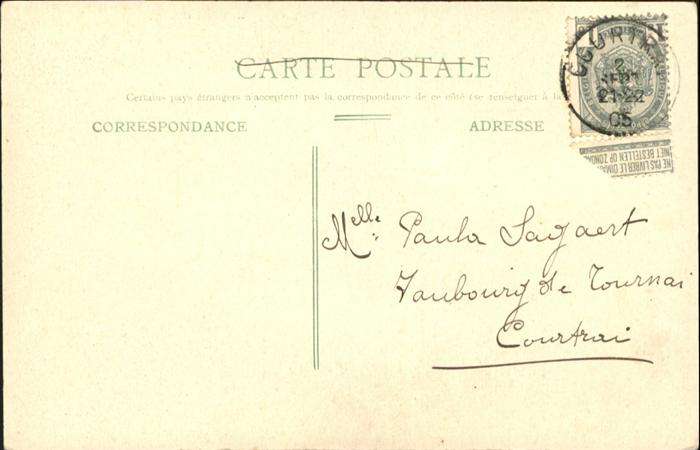 CARTE POSTALE
Certains pays étrangers n'acceptent pas la correspondance de ce côté (se renseigner à la
CORRESPONDANCE
ADRESSE
COURTRAI
2
SEPT
21-22
05
NE PAS LIVRER LE DIMANCHE
NIET BESTELLEN OP ZONDAG
Melle Paula Sagaert
Faubourg de Tournai
Courtrai